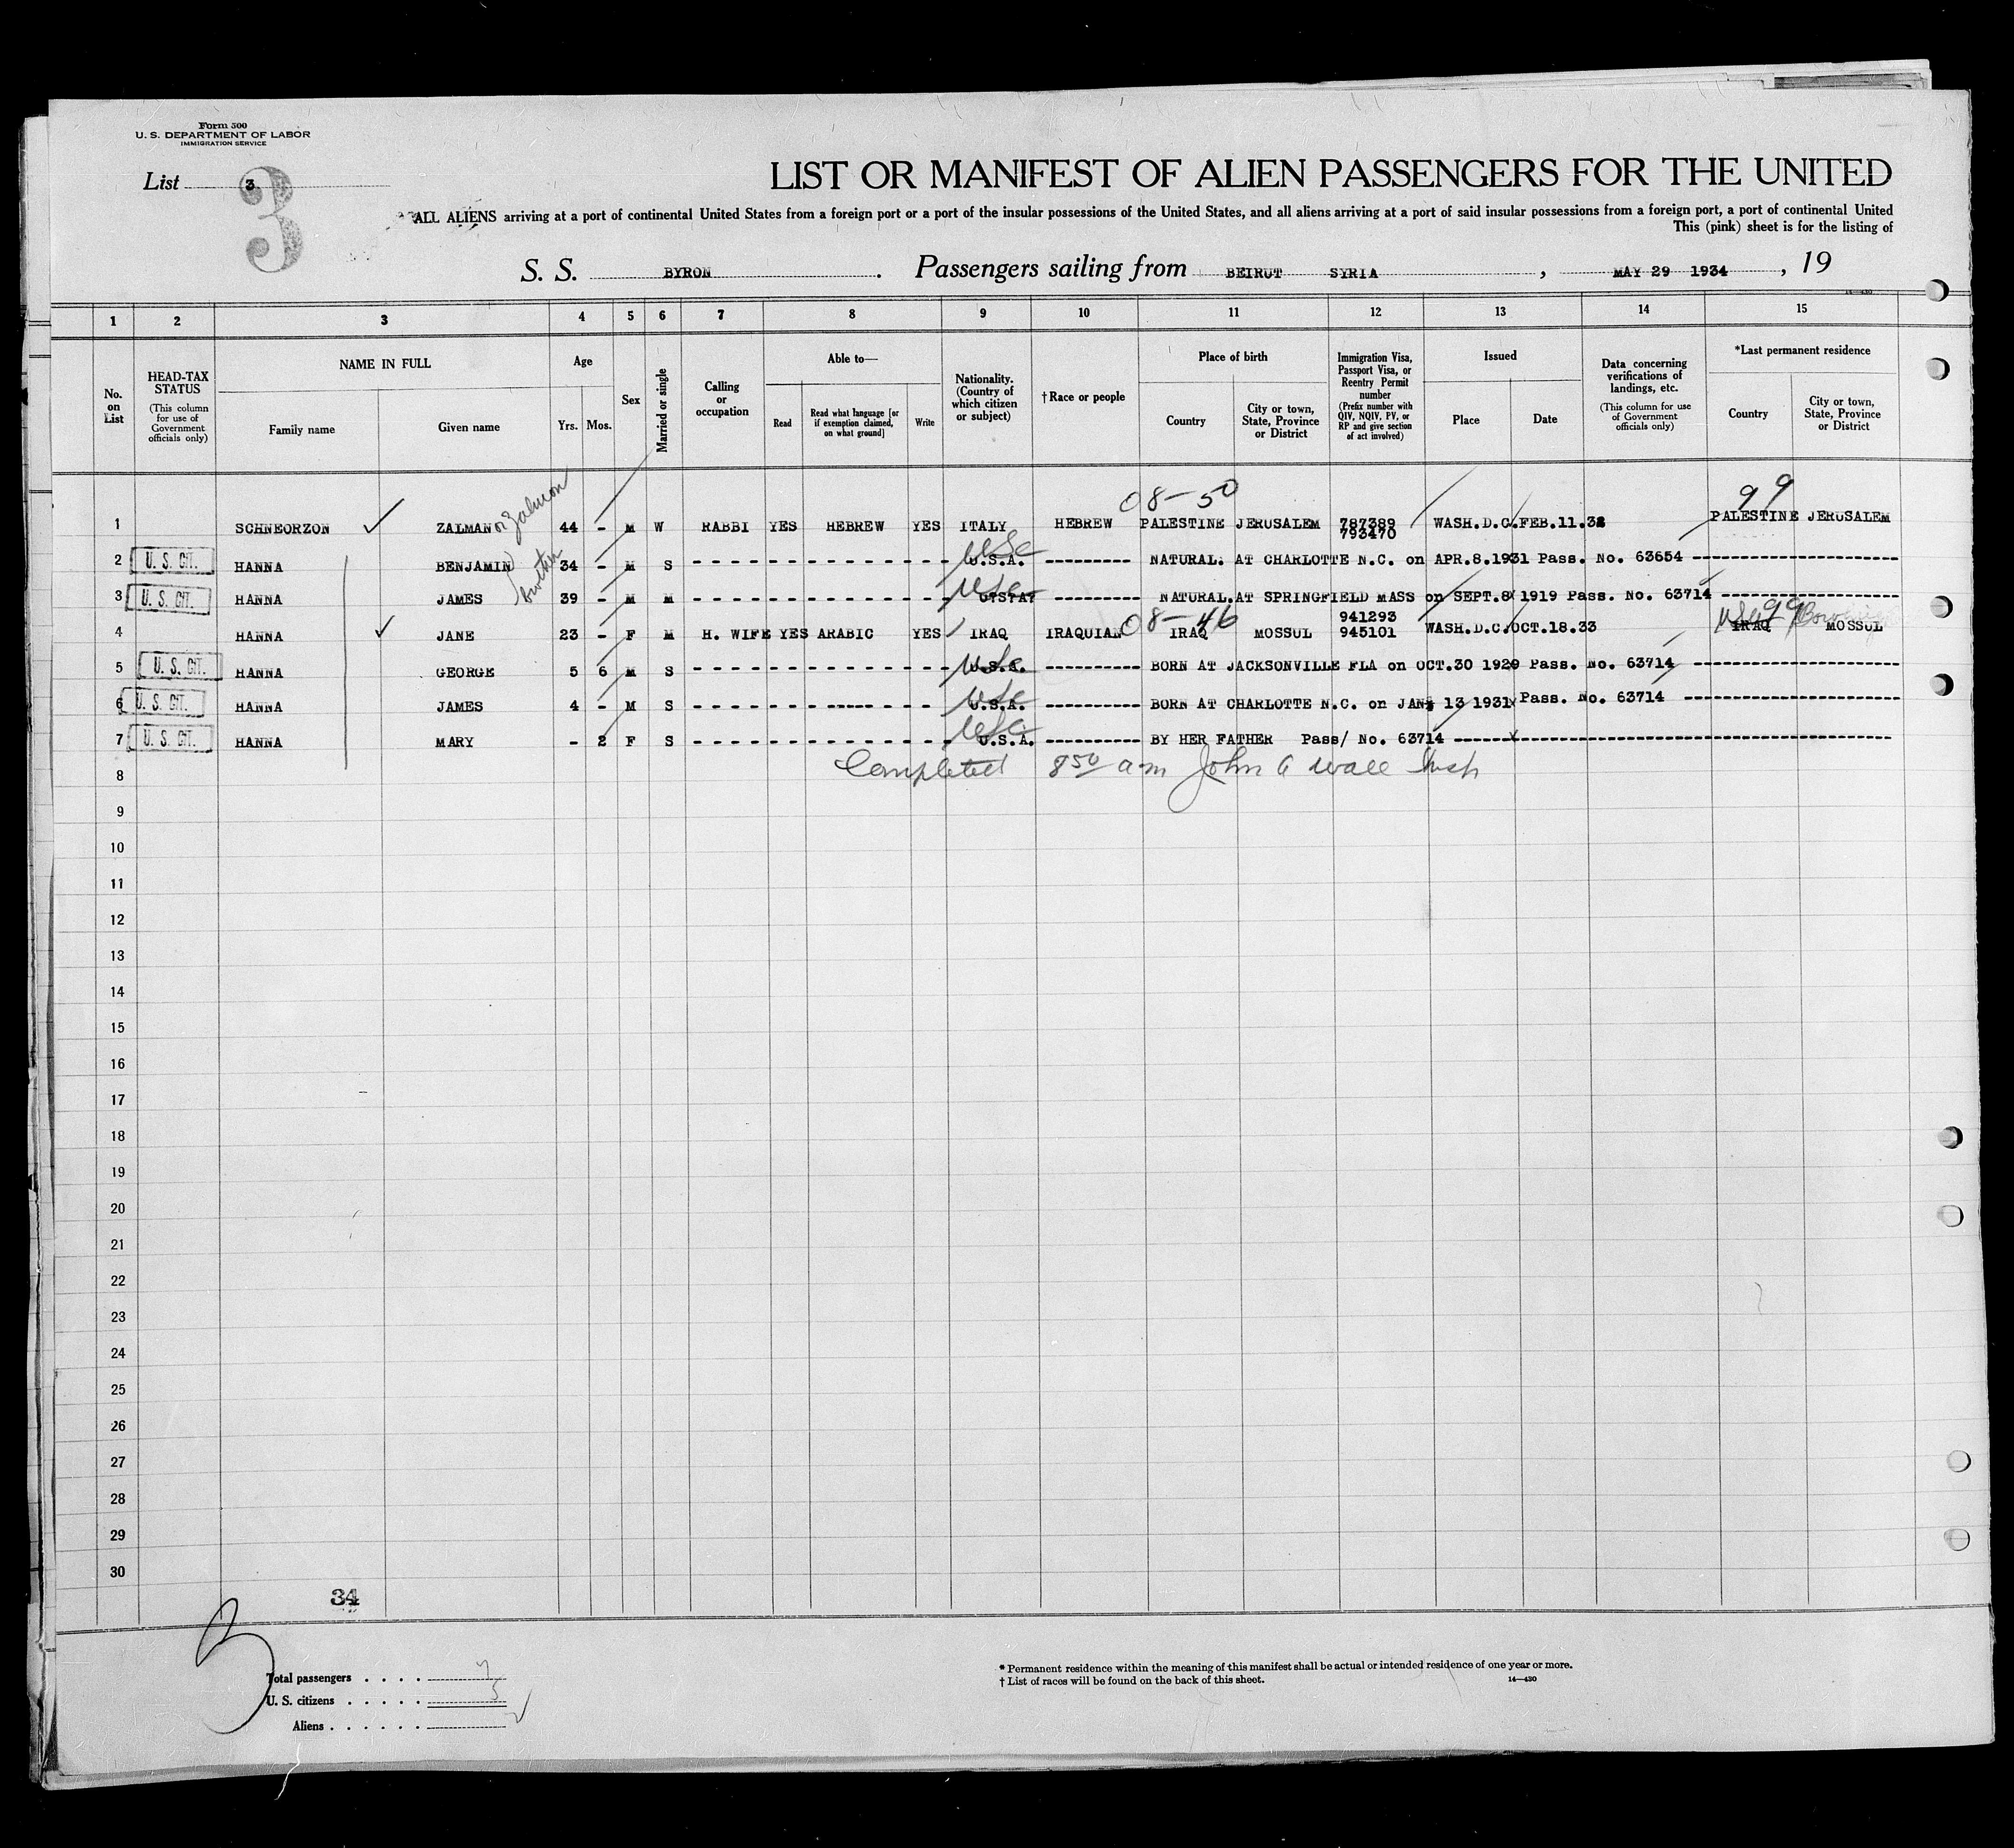 Form 500
U. S. DEPARTMENT OF LABOR
IMMIGRATION SERVICE
List 3
3
LIST OR MANIFEST OF ALIEN PASSENGERS FOR THE UNITED
ALL ALIENS arriving at a port of continental United States from a foreign port or a port of the insular possessions of the United States, and all aliens arriving at a port of said insular possessions from a foreign port, a port of continental United
This (pink) sheet is for the listing of
S. S. BYRON. Passengers sailing from BEIRUT SYRIA, MAY 29 1934, 19
1 2 3 4 5 6 7 8 9 10 11 12 13 14 15
No. on List
HEAD-TAX STATUS
(This column for use of Government officials only)
NAME IN FULL
Family name
Given name
Age
Yrs. Mos.
Sex
Married or single
Calling or occupation
Able to—
Read
Read what language [or if exemption claimed, on what ground]
Write
Nationality. (Country of which citizen or subject)
†Race or people
Place of birth
Country
City or town, State, Province or District
Immigration Visa, Passport Visa, or Reentry Permit number
(Prefix number with QIV, NQIV, PV, or RP and give section of act involved)
Issued
Place
Date
Data concerning verifications of landings, etc.
(This column for use of Government officials only)
*Last permanent residence
Country
City or town, State, Province or District
08-50 99
1 SCHNEORZON ZALMAN or Zalmon 44 - M W RABBI YES HEBREW YES ITALY HEBREW PALESTINE JERUSALEM 787389 WASH.D.C. FEB.11.32 PALESTINE JERUSALEM
793470
2 U. S. CIT. HANNA BENJAMIN brother 34 - M S U.S.A. NATURAL. AT CHARLOTTE N.C. on APR.8.1931 Pass. No. 63654
3 U. S. CIT. HANNA JAMES 39 - M M U.S.A. NATURAL.AT SPRINGFIELD MASS on SEPT.8 1919 Pass. No. 63714
08-46 941293 99
4 HANNA JANE 23 - F M H. WIFE YES ARABIC YES IRAQ IRAQUIAN IRAQ MOSSUL 945101 WASH.D.C. OCT.18.33 IRAQ MOSSUL
5 U. S. CIT. HANNA GEORGE 5 6 M S U.S.A. BORN AT JACKSONVILLE FLA on OCT.30 1929 Pass. No. 63714
6 U. S. CIT. HANNA JAMES 4 - M S U.S.A. BORN AT CHARLOTTE N.C. on JAN. 13 1931 Pass. No. 63714
7 U. S. CIT. HANNA MARY - 2 F S U.S.A. BY HER FATHER Pass/ No. 63714
8 Completed 8 50 am John A Wall Insp
9
10
11
12
13
14
15
16
17
18
19
20
21
22
23
24
25
26
27
28
29
30
34
Total passengers . . . . 7
U. S. citizens . . . . . 5
Aliens . . . . . . 2
* Permanent residence within the meaning of this manifest shall be actual or intended residence of one year or more.
† List of races will be found on the back of this sheet.
14—430